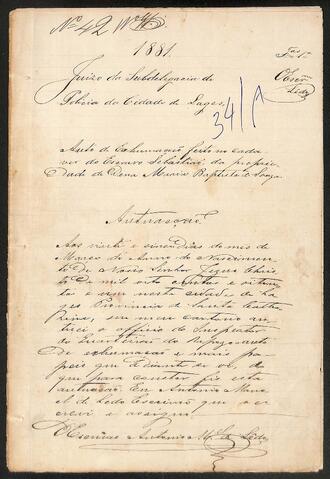 Nº 42
1881.
Fls 1
Juizo da Subdelegacia de
O Escrivm
Policia da Cidade de Lages,
Lêdo
34/A
Auto de Exhumação feito no cada-
ver do Escravo Sebastião da proprie-
dade de Dona Maria Baptista de Souza
Autuação
Aos vinte e cinco dias do mes de
Março do Anno do Nascimen-
to De Nosso Senhor Jezus Chris-
to De mil oito centos e oitenta
e um nesta cidade de La-
ges Provincia de Santa Catha
rina, em meu cartorio au-
tuei o officio do Inspector
do Quarteirão do auto
De exhumação e mais pa-
peis que diante se vê, do
que para constar fiz esta
autuação. Eu Antonio Mano-
el de Ledo Escrivão que o es-
crevi e assigno,
O Escrivão Antonio M. de Lêdo